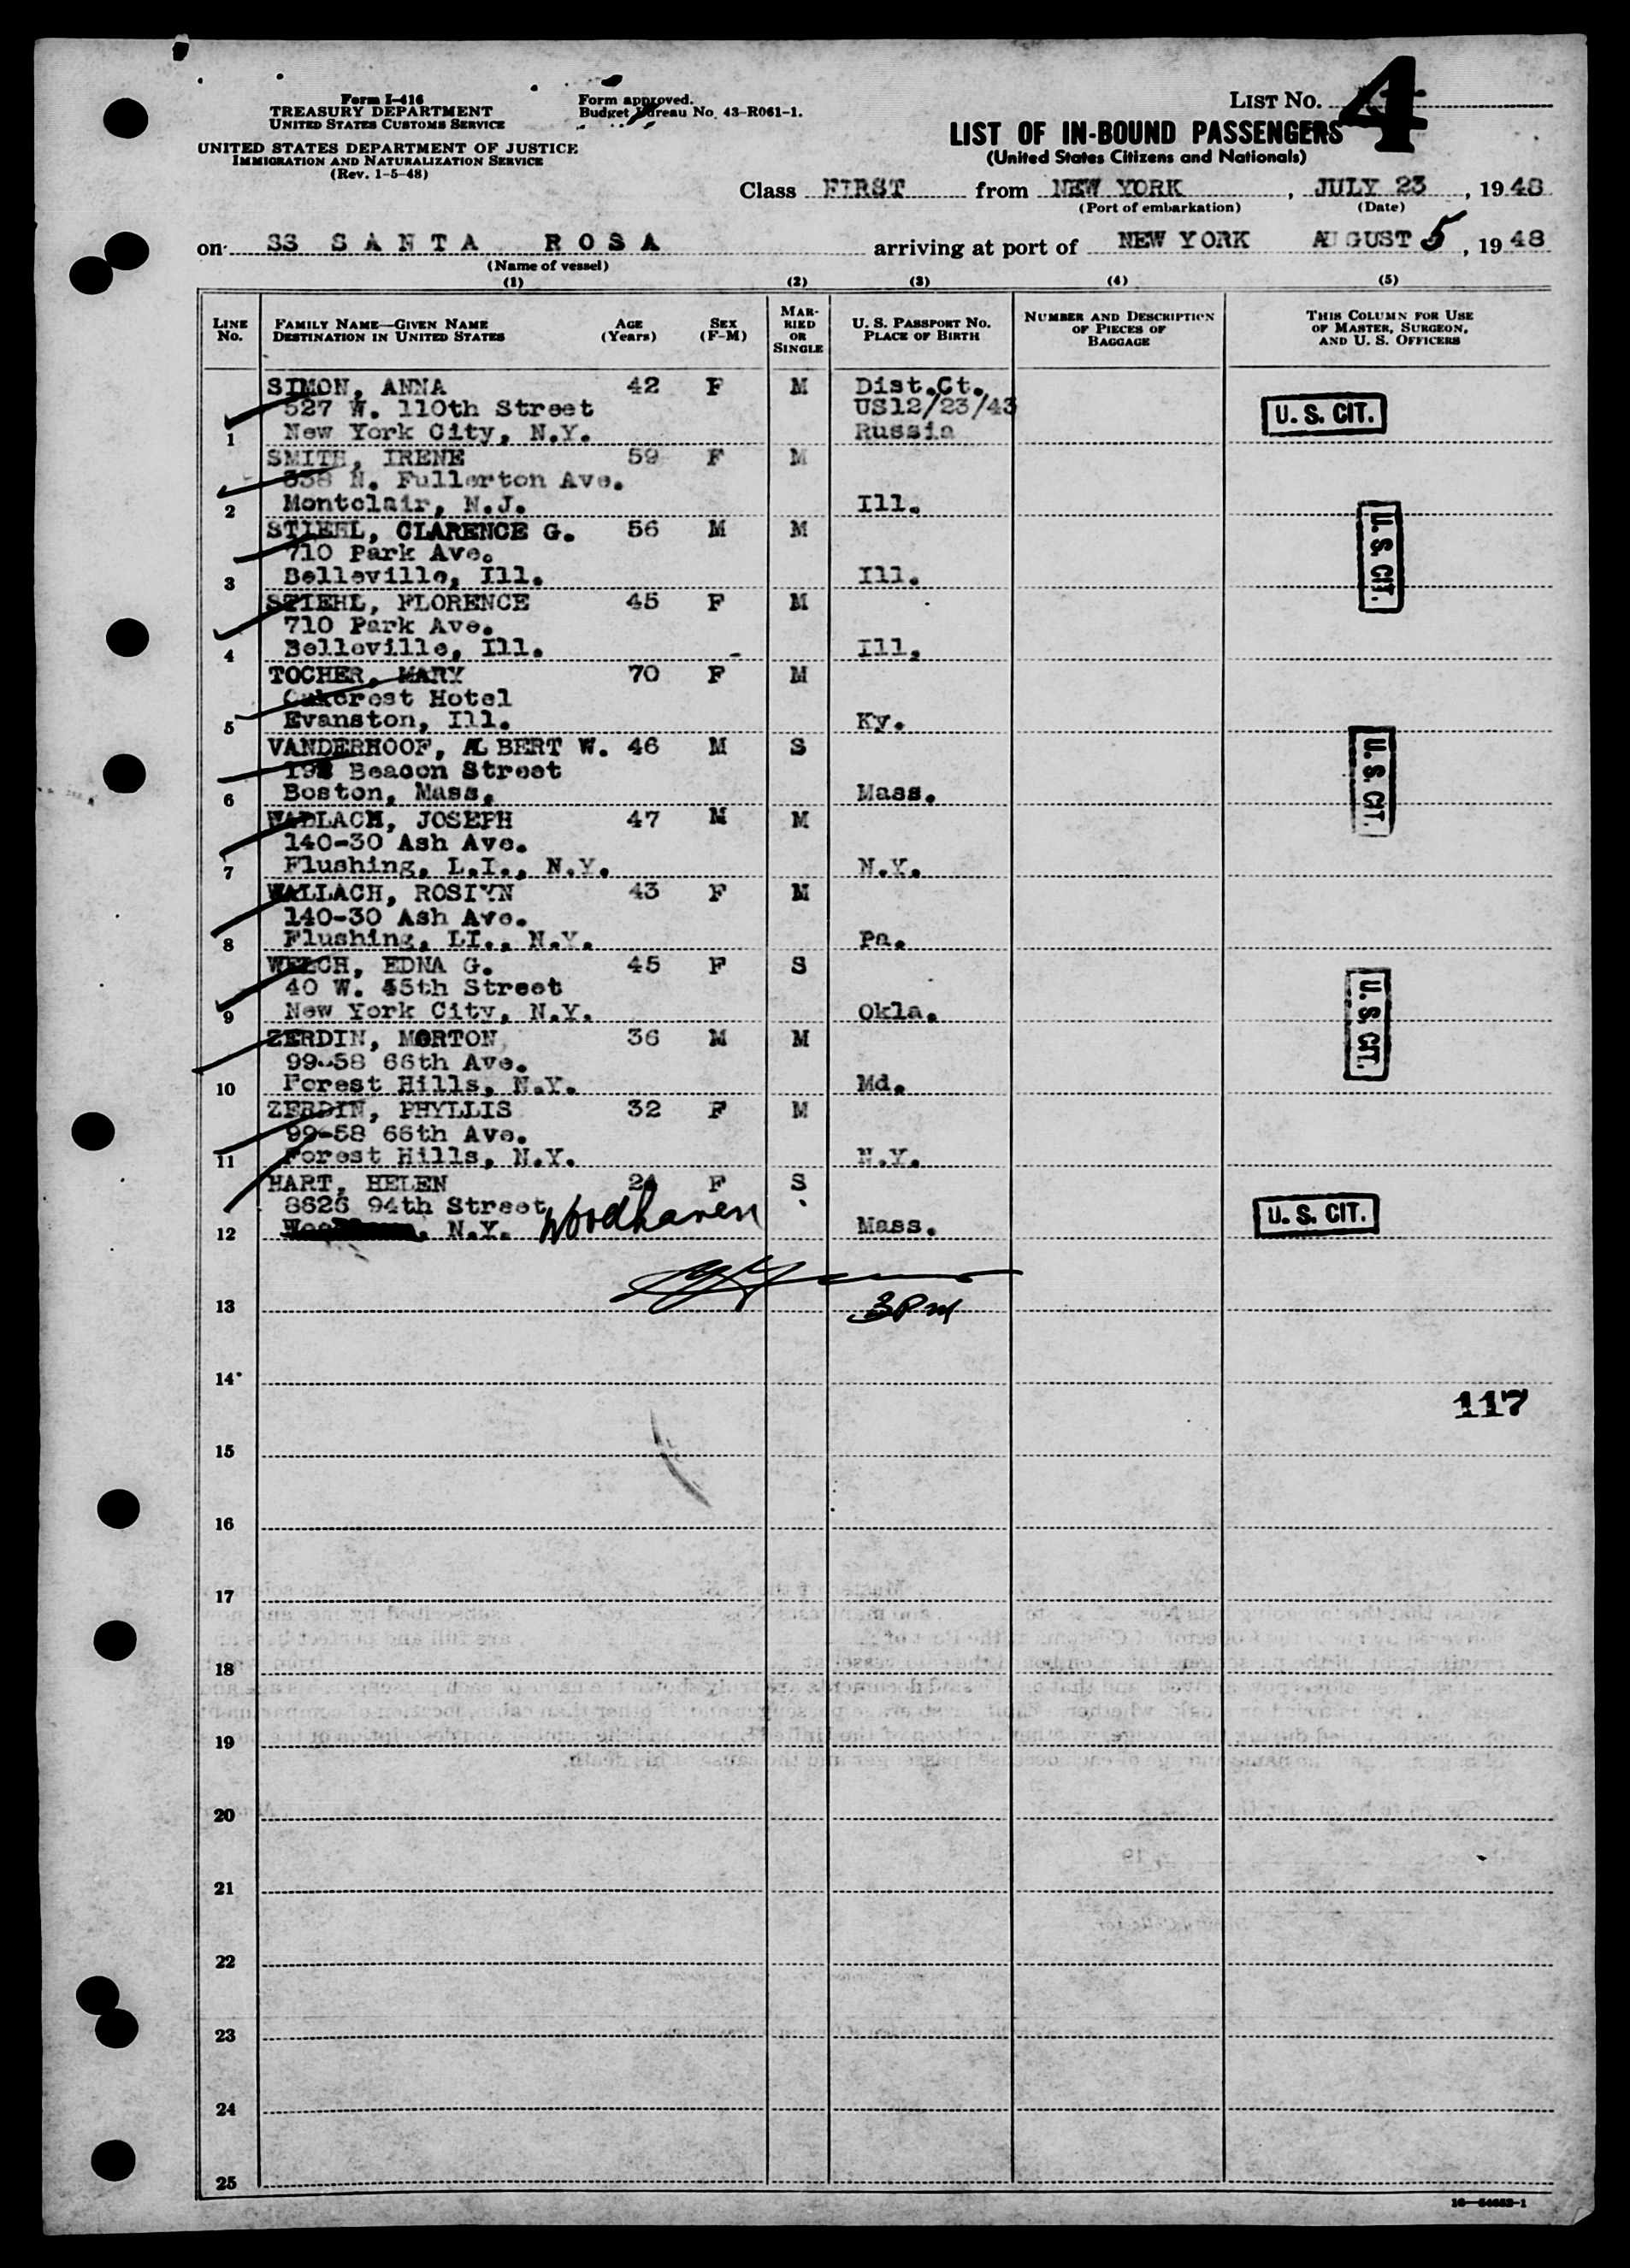 Form I-416
TREASURY DEPARTMENT
UNITED STATES CUSTOMS SERVICE
UNITED STATES DEPARTMENT OF JUSTICE
IMMIGRATION AND NATURALIZATION SERVICE
(Rev. 1-5-48)
Form approved.
Budget Bureau No. 43-R061-1.
LIST NO. 4
LIST OF IN-BOUND PASSENGERS
(United States Citizens and Nationals)
Class FIRST from NEW YORK, JULY 23, 1948
(Port of embarkation) (Date)
on SS SANTA ROSA arriving at port of NEW YORK AUGUST 5, 1948
(Name of vessel)
(1) (2) (3) (4) (5)
LINE No. FAMILY NAME—GIVEN NAME DESTINATION IN UNITED STATES AGE (Years) SEX (F-M) MARRIED OR SINGLE U. S. PASSPORT NO. PLACE OF BIRTH NUMBER AND DESCRIPTION OF PIECES OF BAGGAGE THIS COLUMN FOR USE OF MASTER, SURGEON, AND U. S. OFFICERS
SIMON, ANNA 42 F M Dist.Ct.
527 W. 110th Street US12/23/43 U. S. CIT.
1 New York City, N.Y. Russia
SMITH, IRENE 59 F M
338 N. Fullerton Ave.
2 Montclair, N.J. Ill.
STIEHL, CLARENCE G. 56 M M U. S. CIT.
710 Park Ave.
3 Belleville, Ill. Ill.
STIEHL, FLORENCE 45 F M
710 Park Ave.
4 Belleville, Ill. Ill.
TOCHER, MARY 70 F M
Oakcrest Hotel
5 Evanston, Ill. Ky.
VANDERHOOF, ALBERT W. 46 M S U. S. CIT.
Beacon Street
6 Boston, Mass. Mass.
JOSEPH 47 M M
140-30 Ash Ave.
7 Flushing, L.I., N.Y. N.Y.
WALLACH, ROSLYN 43 F M
140-30 Ash Ave.
8 Flushing, LI., N.Y. Pa.
WELCH, EDNA G. 45 F S U. S. CIT.
40 W. 45th Street
9 New York City, N.Y. Okla.
ZERDIN, MORTON 36 M M
99-58 66th Ave.
10 Forest Hills, N.Y. Md.
ZERDIN, PHYLLIS 32 F M
99-58 66th Ave.
11 Forest Hills, N.Y. N.Y.
HART, HELEN F S
8626 94th Street U. S. CIT.
12 N.Y. Woodhaven Mass.
13 3PM
14
117
15
16
17
18
19
20
21
22
23
24
25